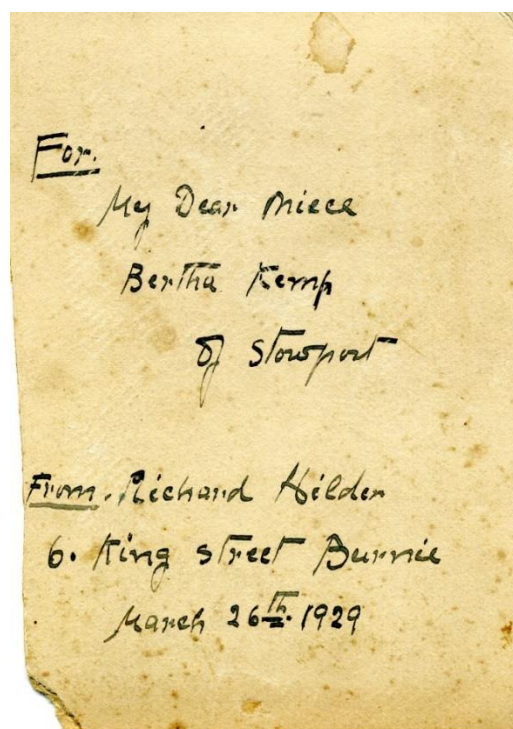 For.
My Dear Niece
Bertha Kemp
Of Stowport
From. Richard Hilder
6. King Street Burnie
March 26th. 1929